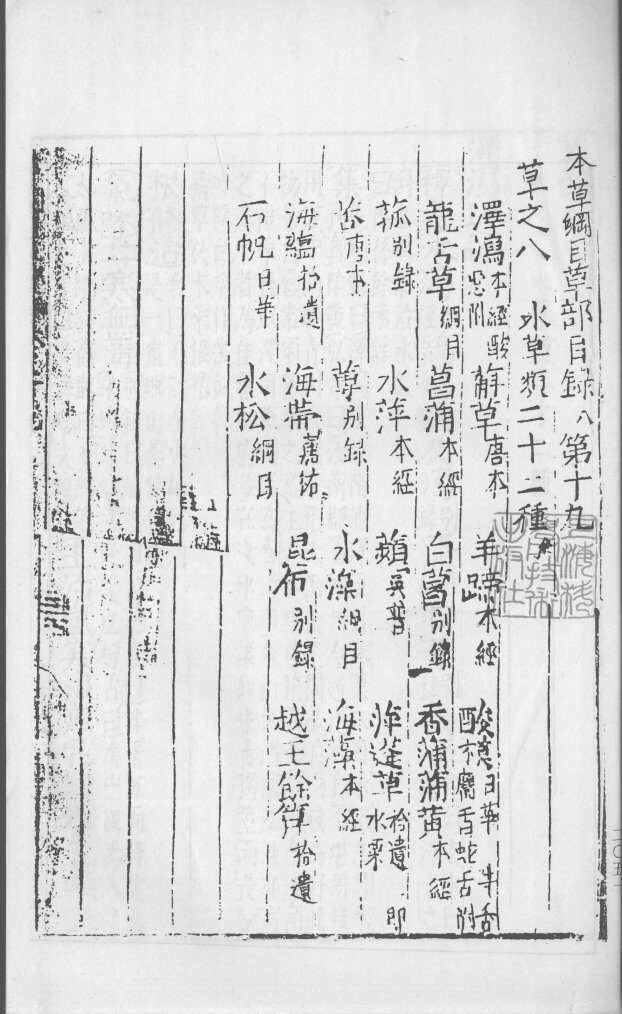 本草綱目草部目錄八第十九
草之八 水草類二十二種
澤瀉本經 酸惡附 蔛草唐本 羊蹄本經 酸模日華 牛舌
龍舌草綱目 菖蒲本經 白菖別錄 香蒲蒲黃本經
菰別錄 水萍本經 蘋吳普 萍蓬草拾遺 即水粟
唐本 蓴別錄 水藻綱目 海藻本經
海蘊拾遺 海帶嘉祐 昆布別錄 越王餘筭拾遺
石帆日華 水松綱目